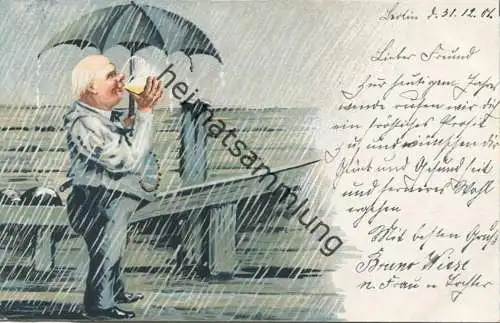 Berlin d. 31.12.01.
Lieber Freund
Zur heutigen Jahres
wende rufen wir dir
ein fröhliches Prosit
zu, und wünschen dir
Glück und Gesundheit
und ferneres Wohl
ergehen
Mit besten Gruß
Bruno Wiese
n. Frau u Tochter
heimatsammlung